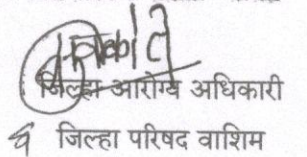 जिल्हा आरोग्य अधिकारी
जिल्हा परिषद वाशिम